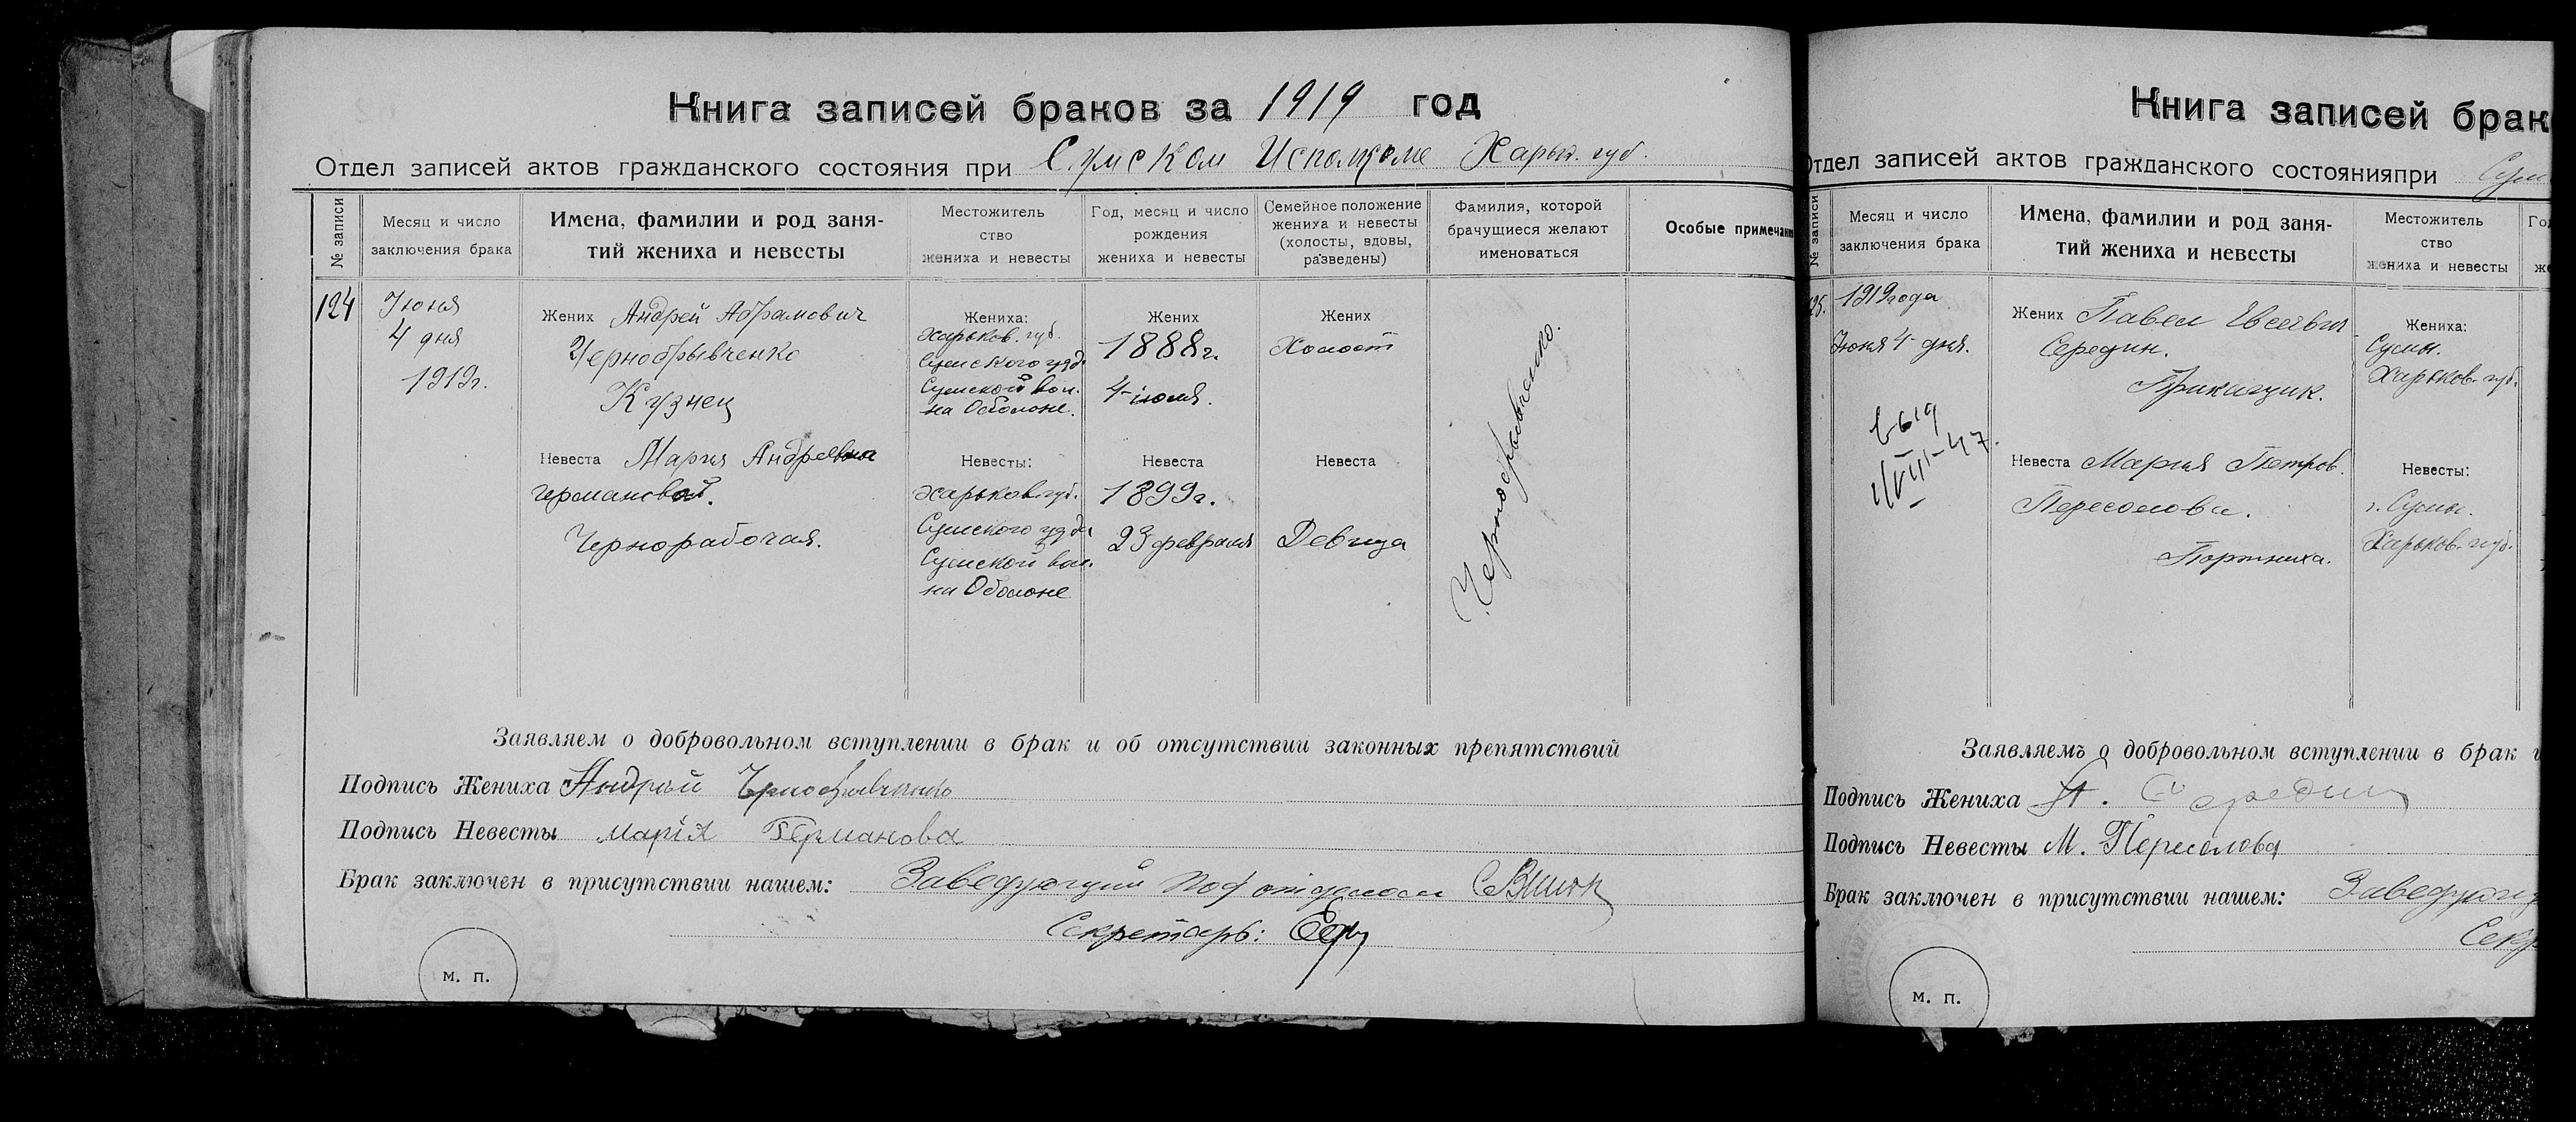 Книга записей браков за 1919 год
Отдел записей актов гражданского состояния при Сумском Исполкоме Харьк. губ.
№ записи
Месяц и число
заключения брака
Имена, фамилии и род заня-
тий жениха и невесты
Местожитель
ство
жениха и невесты
Год, месяц и число
рождения
жениха и невесты
Семейное положение
жениха и невесты
(холосты, вдовы,
разведены)
Фамилия, которой
брачущиеся желают
именоваться
Особые примечани
124
Июня
4 дня
1919г.
Жених Андрей Абрамович
Чернобрывченко
Кузнец
Жениха:
Харьков. губ.
Сумского уезд.
Сумской вол.
на Оболоне.
Жених
1888г.
4-июля.
Жених
Холост
Чернобрывченко.
Невеста Мария Андреевна
Германовой.
Чернорабочая.
Невесты:
Харьков губ.
Сумского уезда
Сумской вол.
на Оболоне
Невеста
1899г.
23 февраля
Невеста
Девица
Заявляем о добровольном вступлении в брак и об отсутствии законных препятствий
Подпись Жениха Андрей
Подпись Невесты Марія Германова
Брак заключен в присутствии нашем: Заведующий подотделом
Секретарь:
м. п.
Книга записей брак
Отдел записей актов гражданского состоянияпри Сум
№ записи
Месяц и число
заключения брака
Имена, фамилии и род заня-
тий жениха и невесты
Местожитель
ство
жениха и невесты
125.
1919 года
Июня 4 дня.
Жених Павел
Середин.
Приказчик.
Жениха:
Сумы.
Харьков. губ.
Невеста Мария Петров.
Пересолова.
Портниха.
Невесты:
г. Сумы.
Харьков. губ.
Заявляемъ о добровольном вступлении в брак и
Подпись Жениха П. Середин
Подпись Невесты М. Пересолова
Брак заключен в присутствии нашем: Заведующ
Секр
м. п.